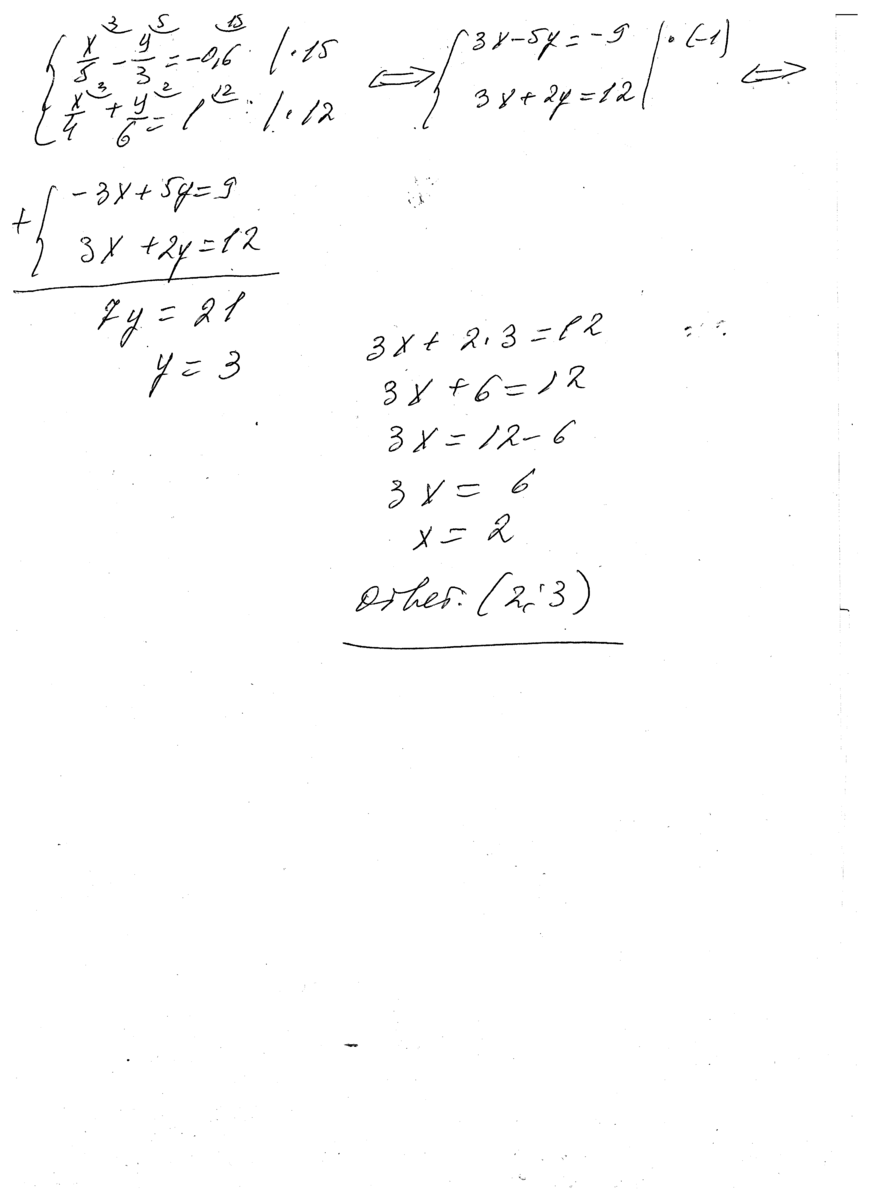 { x/5 ³ - y/3 ⁵ = -0,6 ¹⁵ |·15
{ x/4 ³ + y/6 ² = 1 ¹² |·12
⟺ { 3x-5y=-9 |·(-1)
{ 3x+2y=12 | ⟺
+{ -3x+5y=9
{ 3x+2y=12
7y=21
y=3
3x+2·3=12
3x+6=12
3x=12-6
3x=6
x=2
Ответ: (2;3)